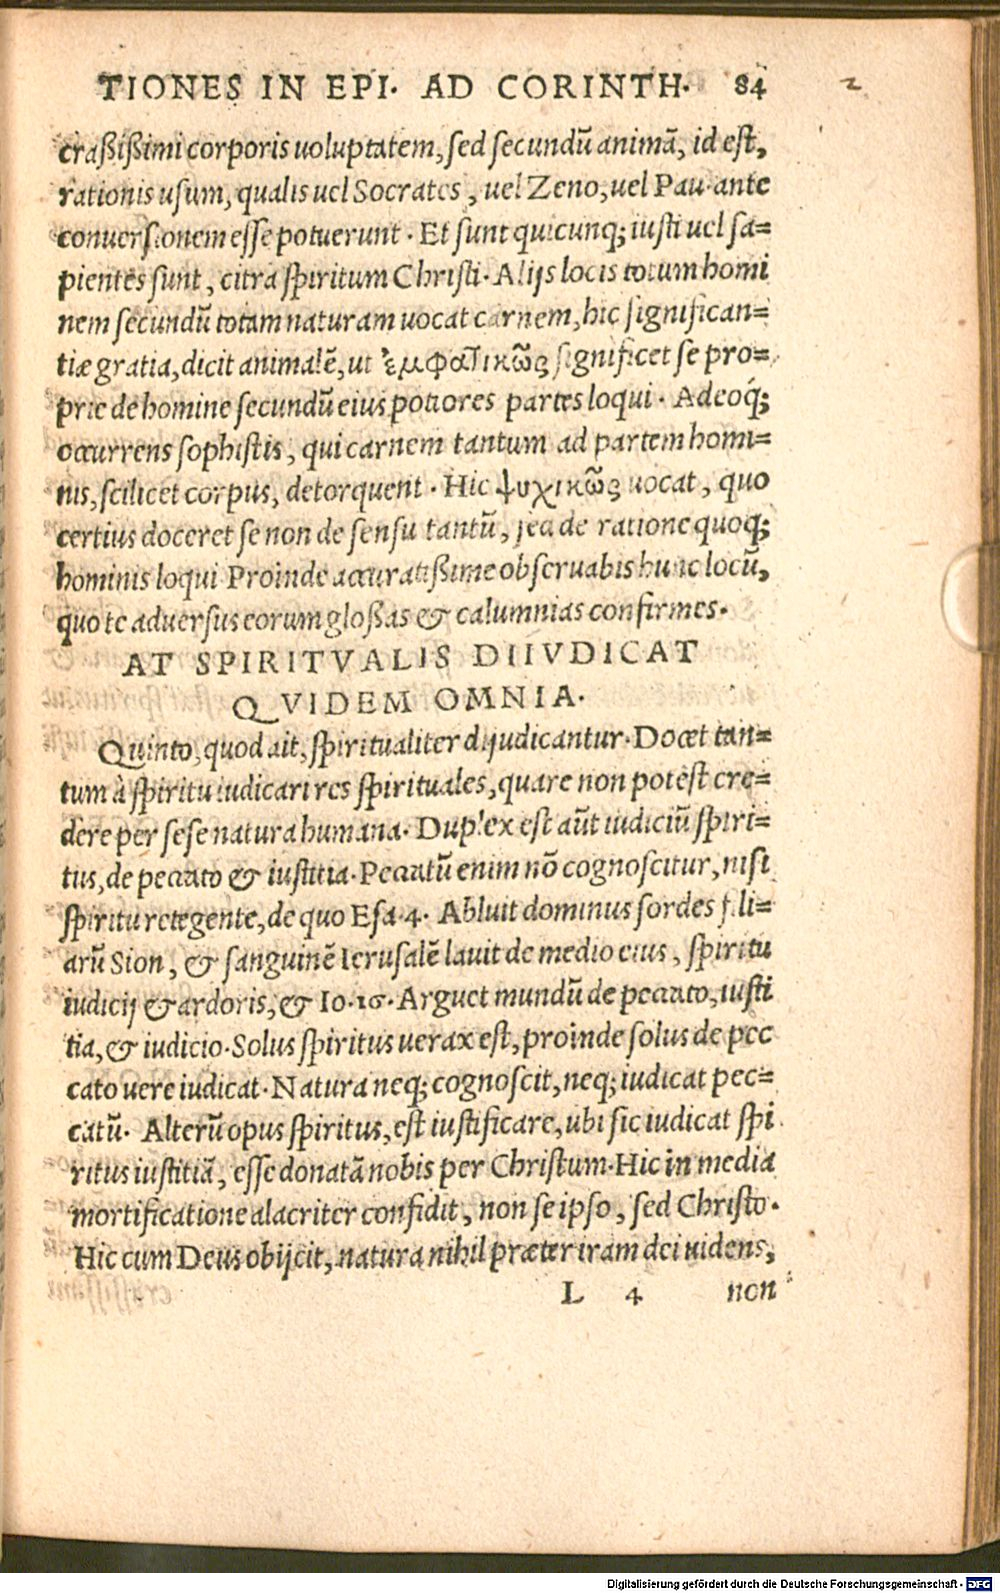 TIONES IN EPI. AD CORINTH. 84 2
craßißimi corporis uoluptatem, sed secundũ animã, id est,
rationis usum, qualis uel Socrates, uel Zeno, uel Pau. ante
conuersionem esse potuerunt. Et sunt quicunq; iusti uel sa=
pientes sunt, citra spiritum Christi. Alijs locis totum homi
nem secundũ totam naturam uocat carnem, hic significan=
tiæ gratia, dicit animalẽ, ut ἐμφατικῶς significet se pro=
prie de homine secundũ eius potiores partes loqui. Adeoq́;
occurrens sophistis, qui carnem tantum ad partem homi=
nis, scilicet corpus, detorquent. Hic ψυχικῶς uocat, quo
certius doceret se non de sensu tantũ, sed de ratione quoq;
hominis loqui Proinde accuratißime obseruabis hunc locũ,
quo te aduersus eorum gloßas & calumnias confirmes.
AT SPIRITVALIS DIIVDICAT
QVIDEM OMNIA.
Quinto, quod ait, spiritualiter dijudicantur. Docet tan=
tum à spiritu iudicari res spirituales, quare non potest cre=
dere per sese natura humana. Duplex est aũt iudiciũ spiri=
tus, de peccato & iustitia. Peccatũ enim nõ cognoscitur, nisi
spiritu retegente, de quo Esa. 4. Abluit dominus sordes fili=
arũ Sion, & sanguinẽ Ierusalẽ lauit de medio eius, spiritu
iudicij & ardoris, & Io. 16. Arguet mundũ de peccato, iusti
tia, & iudicio. Solus spiritus uerax est, proinde solus de pec
cato uere iudicat. Natura neq; cognoscit, neq; iudicat pec=
catũ. Alterũ opus spiritus, est iustificare, ubi sic iudicat spi
ritus iustitiã, esse donatã nobis per Christum. Hic in media
mortificatione alacriter confidit, non se ipso, sed Christo.
Hic cum Deus obijcit, natura nihil præter iram dei uidens,
L 4 non
Digitalisierung gefördert durch die Deutsche Forschungsgemeinschaft - DFG